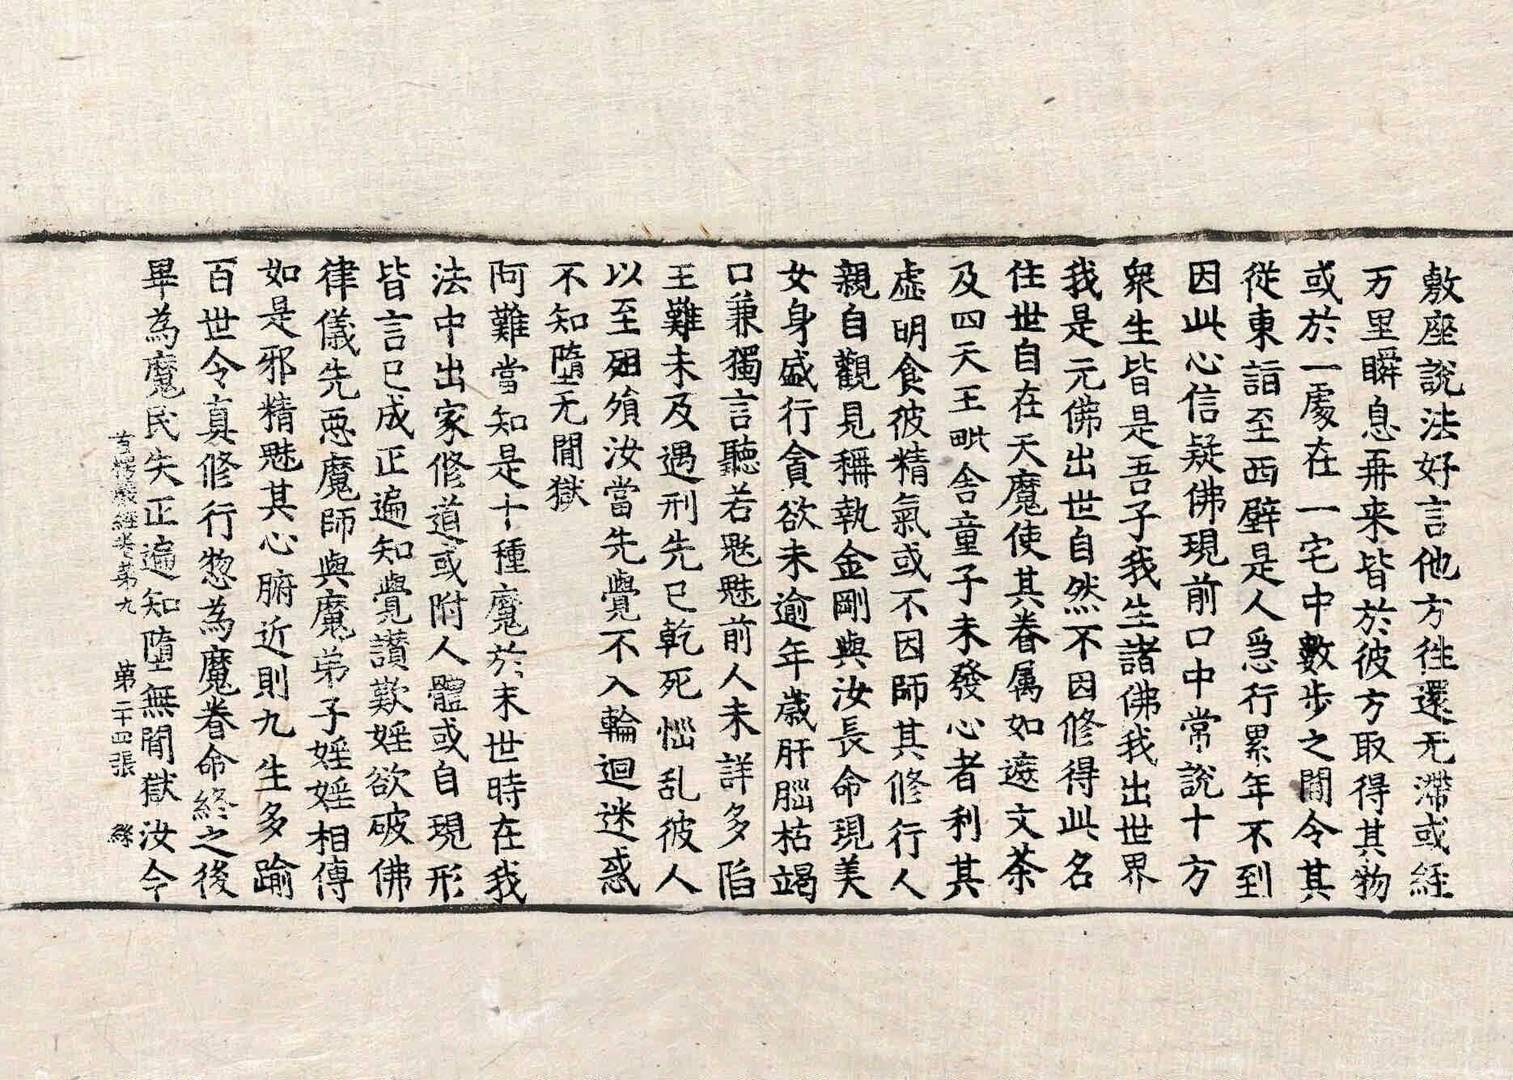 敷座說法好言他方往還无滯或經
万里瞬息再来皆於彼方取得其物
或於一處在一宅中數步之閒令其
從東詣至西壁是人急行累年不到
因此心信疑佛現前口中常說十方
衆生皆是吾子我生諸佛我出世界
我是元佛出世自然不因修得此名
住世自在天魔使其眷属如遮文茶
及四天王毗舍童子未發心者利其
虛明食彼精氣或不因師其修行人
親自觀見稱執金剛與汝長命現美
女身盛行貪欲未逾年歲肝腦枯竭
口兼獨言聽若魃魅前人未詳多陷
王難未及遇刑先已乾死惱乱彼人
以至殂殞汝當先覺不入輪迴迷惑
不知墮无閒獄
阿難當知是十種魔於末世時在我
法中出家修道或附人體或自現形
皆言已成正遍知覺讃歎婬欲破佛
律儀先惡魔師與魔弟子婬婬相傳
如是邪精魅其心腑近則九生多踰
百世令真修行惣為魔眷命終之後
畢為魔民失正遍知墮無閒獄汝今
首楞嚴經卷第九 第二十四張 絲